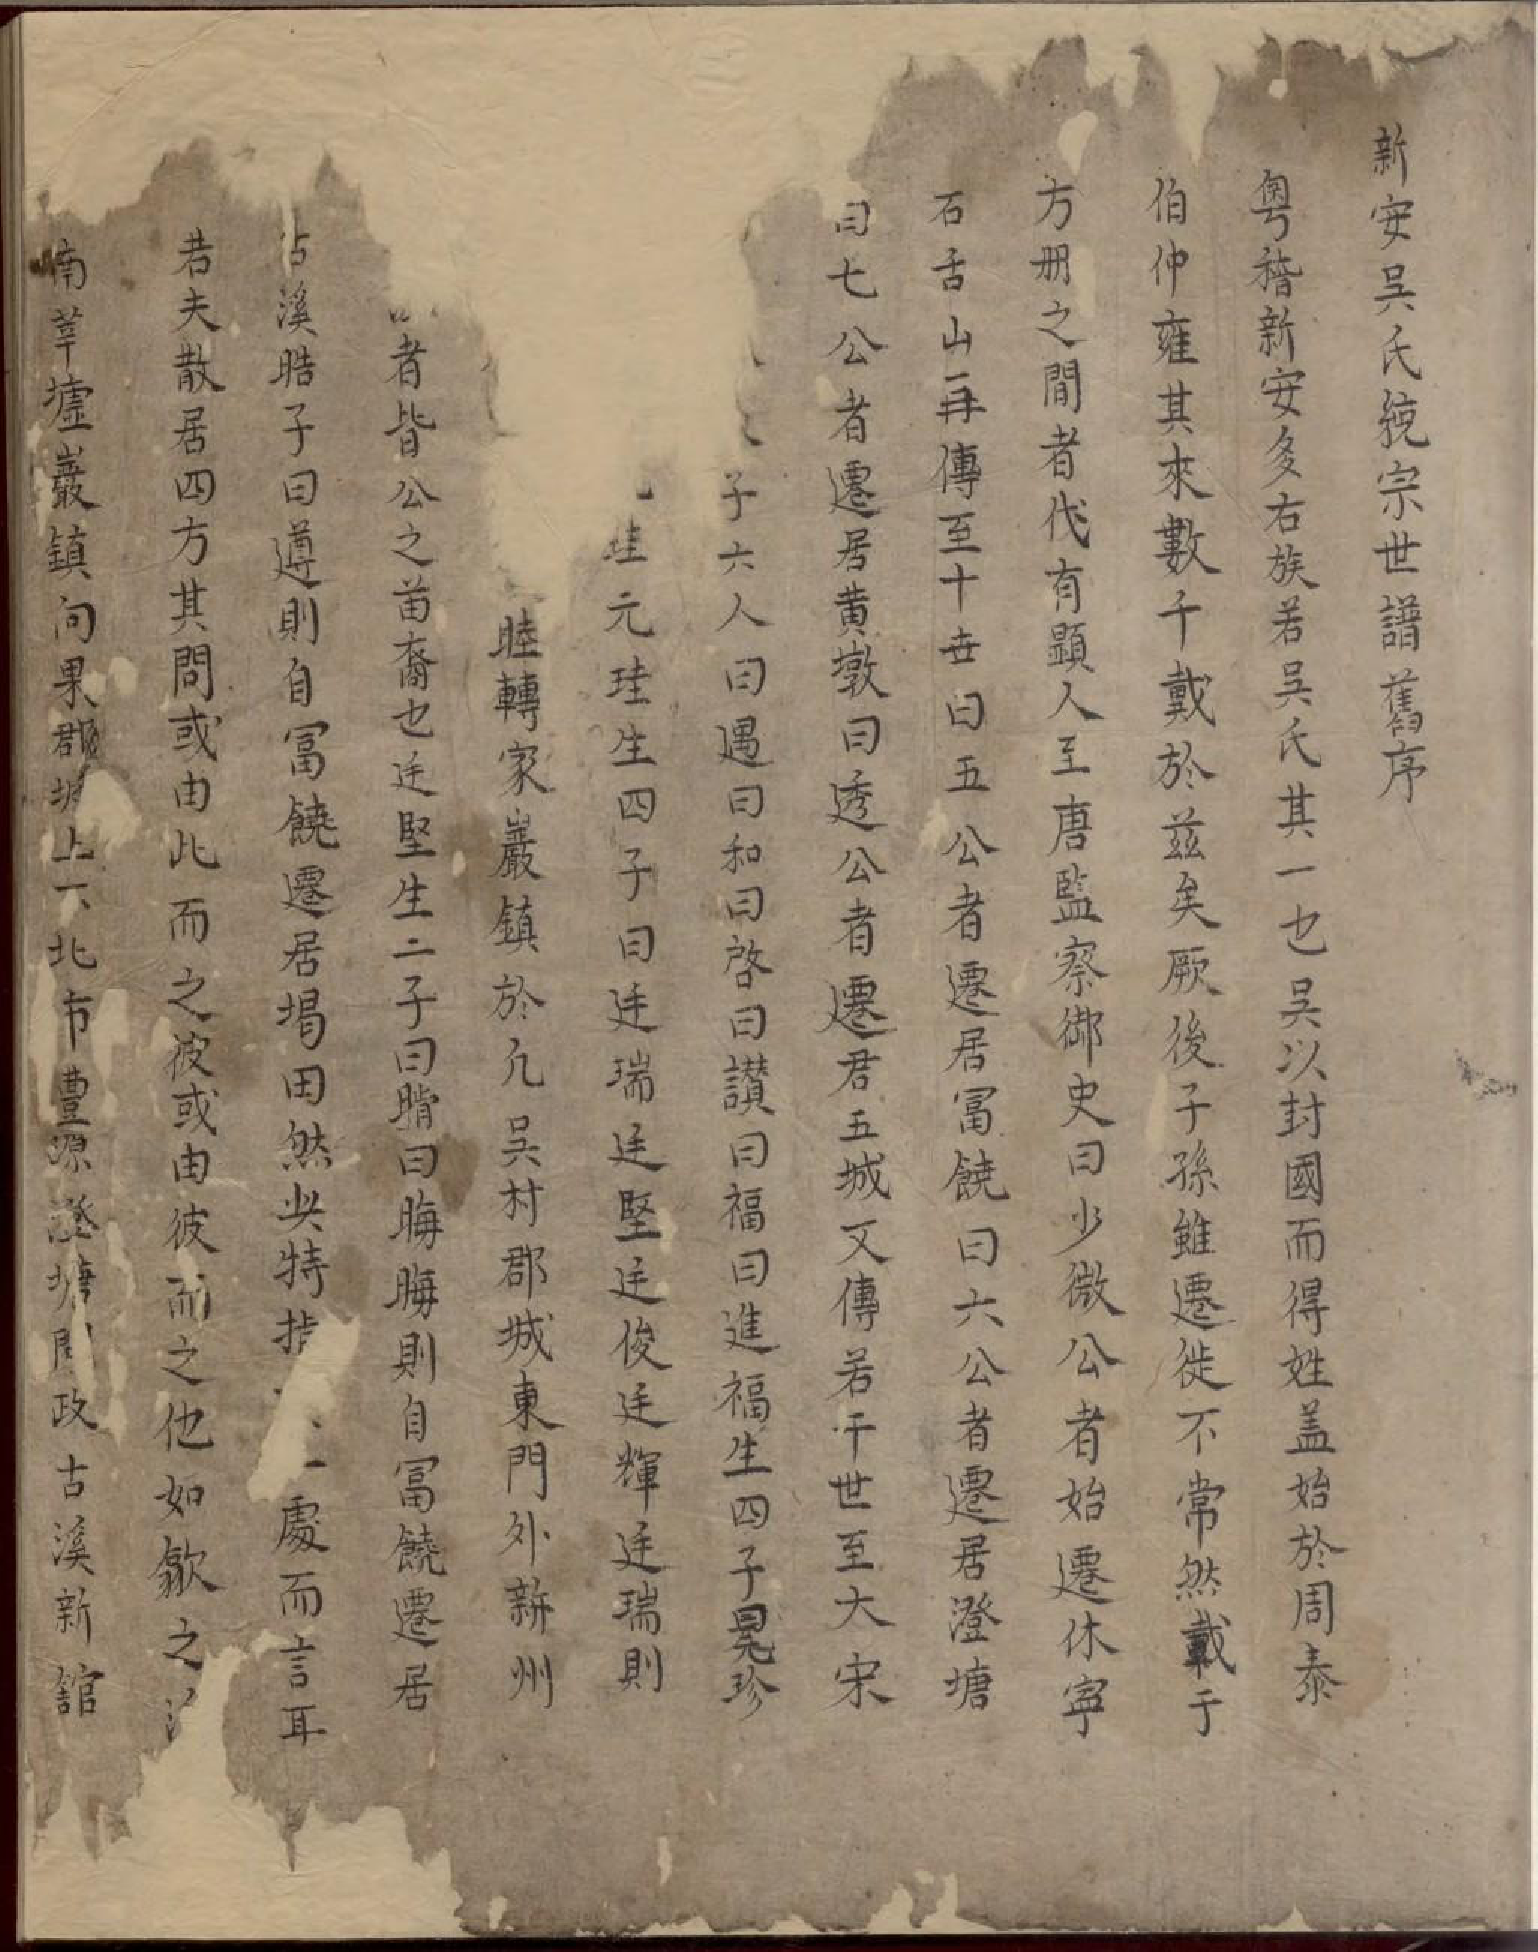 新安吳氏統宗世譜舊序
粵稽新安多右族若吳氏其一也吳以封國而得姓盖始於周泰
伯仲雍其來數千戴於兹矣厥後子孫雖遷徙不常然載于
方册之間者代有顯人至唐監察御史曰少微公者始遷休寧
石舌山再傳至十世曰五公者遷居冨饒曰六公者遷居澄塘
曰七公者遷居黄墩曰透公者遷君五城又傳若干世至大宋
子六人曰遇曰和曰啓曰讃曰福曰進福生四子晃珍
珪元珪生四子曰廷瑞廷堅廷俊廷輝廷瑞則
睦轉家巖鎮於凢吳村郡城東門外薪州
者皆公之苗裔也廷堅生二子曰睛曰晦晦則自冨饒遷居
溪晧子曰遵則自冨饒遷居堨田然此特指一處而言耳
若夫散居四方其間或由此而之彼或由彼而之他如歙之
南莘墟巖鎮向果郡城上下北市豊源澄塘政古溪新舘